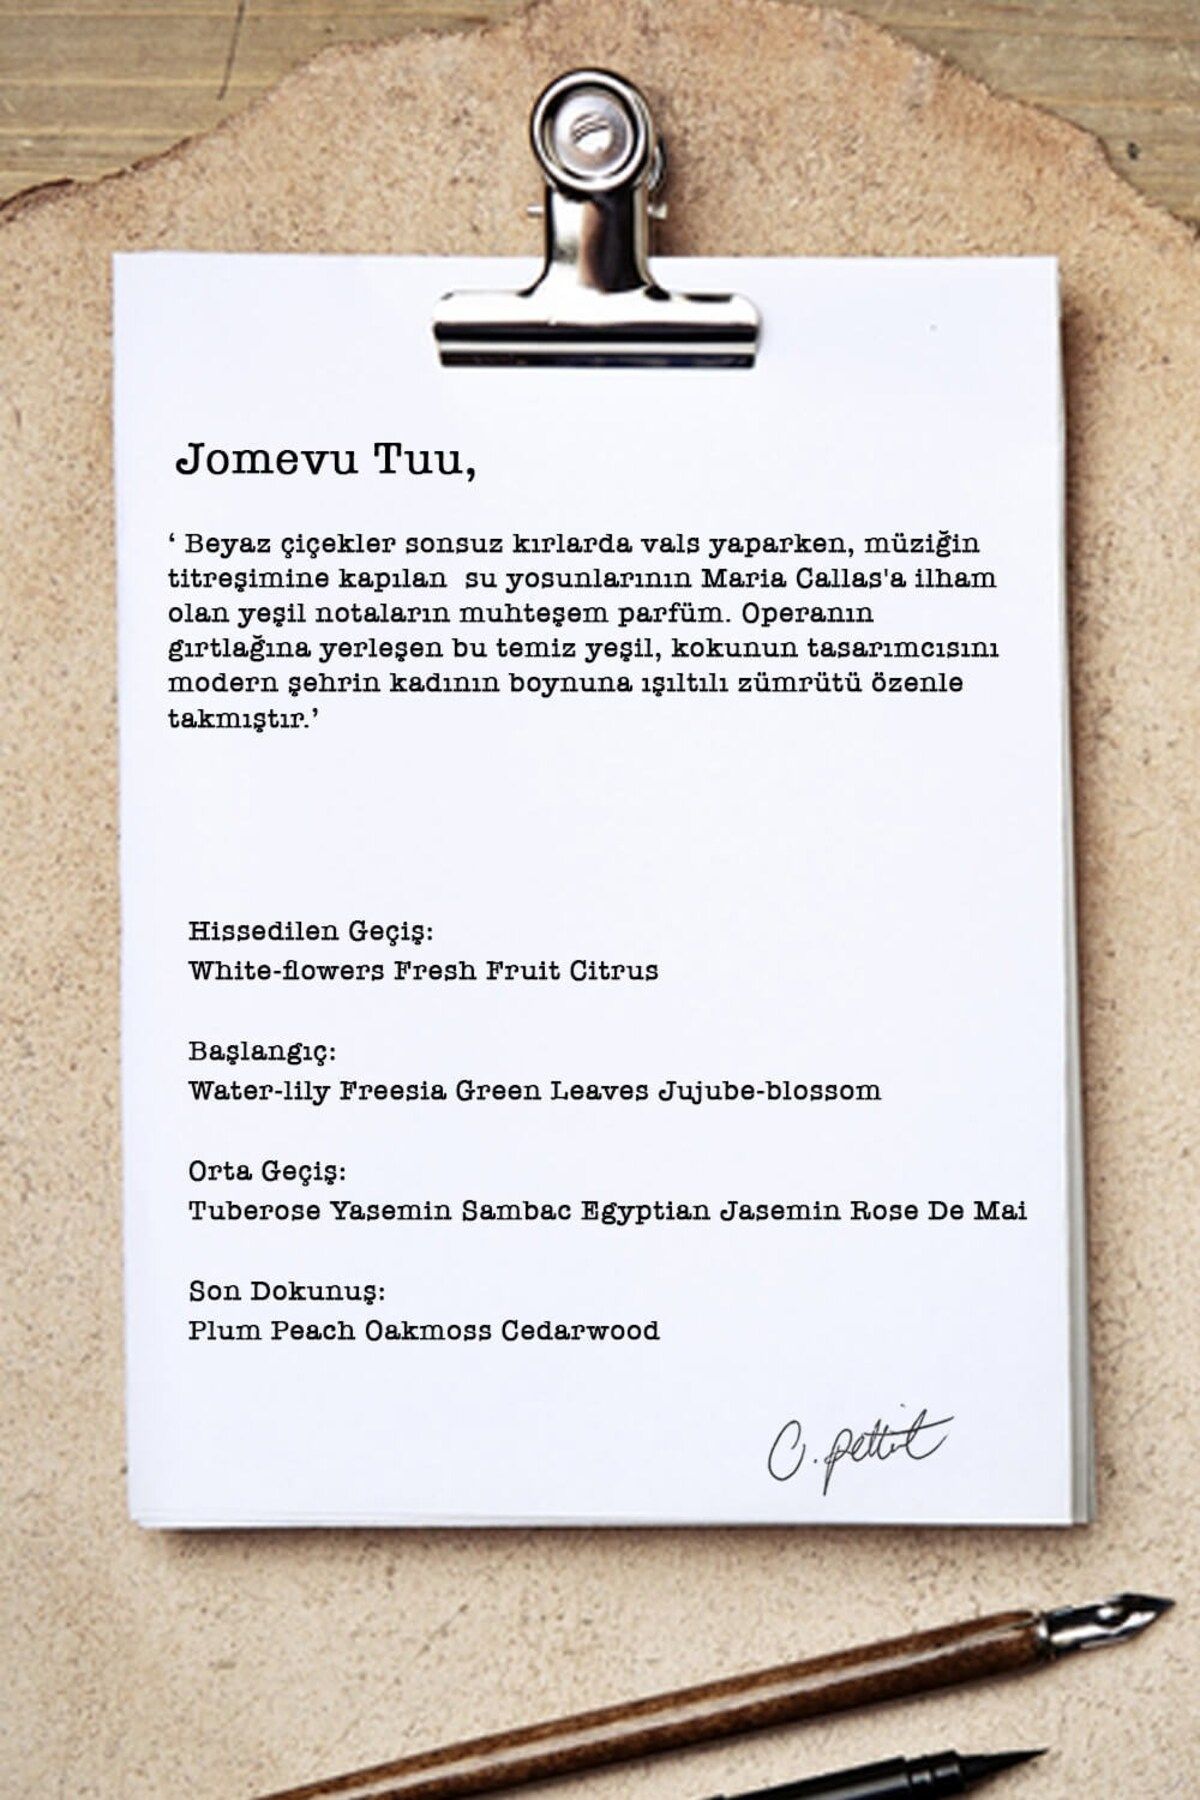 Jomevu Tuu,
‘ Beyaz çiçekler sonsuz kırlarda vals yaparken, müziğin
titreşimine kapılan  su yosunlarının Maria Callas'a ilham
olan yeşil notaların muhteşem parfüm. Operanın
gırtlağına yerleşen bu temiz yeşil, kokunun tasarımcısını
modern şehrin kadının boynuna ışıltılı zümrütü özenle
takmıştır.’
Hissedilen Geçiş:
White-flowers Fresh Fruit Citrus
Başlangıç:
Water-lily Freesia Green Leaves Jujube-blossom
Orta Geçiş:
Tuberose Yasemin Sambac Egyptian Jasemin Rose De Mai
Son Dokunuş:
Plum Peach Oakmoss Cedarwood
C. Pettit